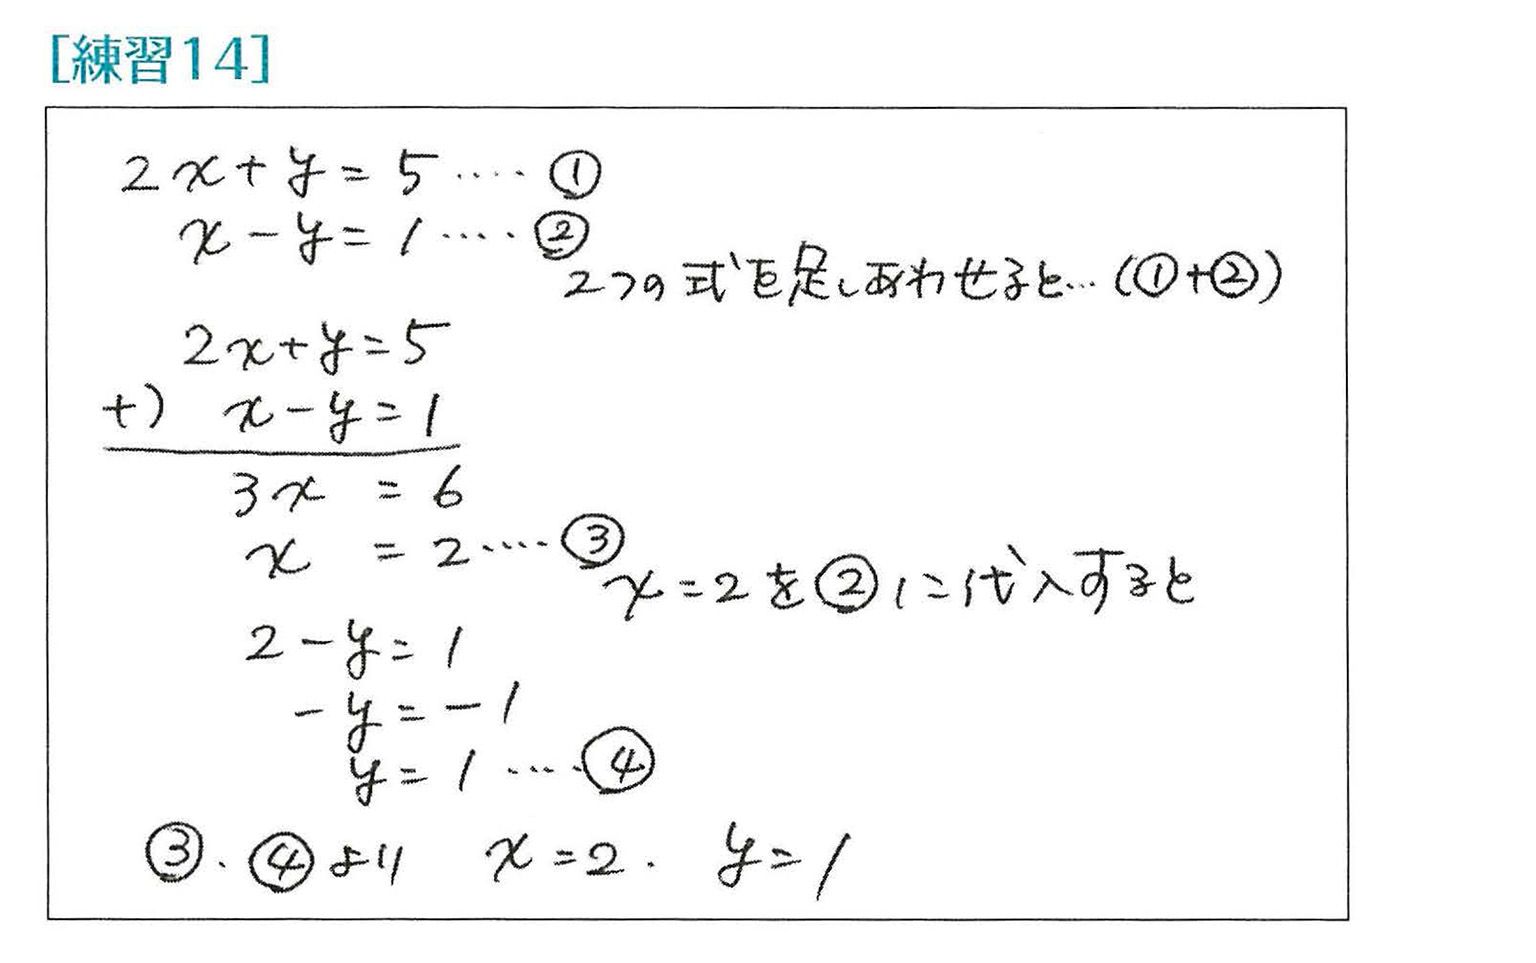 [練習14]
2x+y=5‥‥①
x-y=1‥‥②
2つの式を足しあわせると…(①+②)
2x+y=5
+) x-y=1
3x =6
x =2‥‥③
x=2を②に代入すると
2-y=1
-y=-1
y=1‥‥④
③.④より x=2. y=1